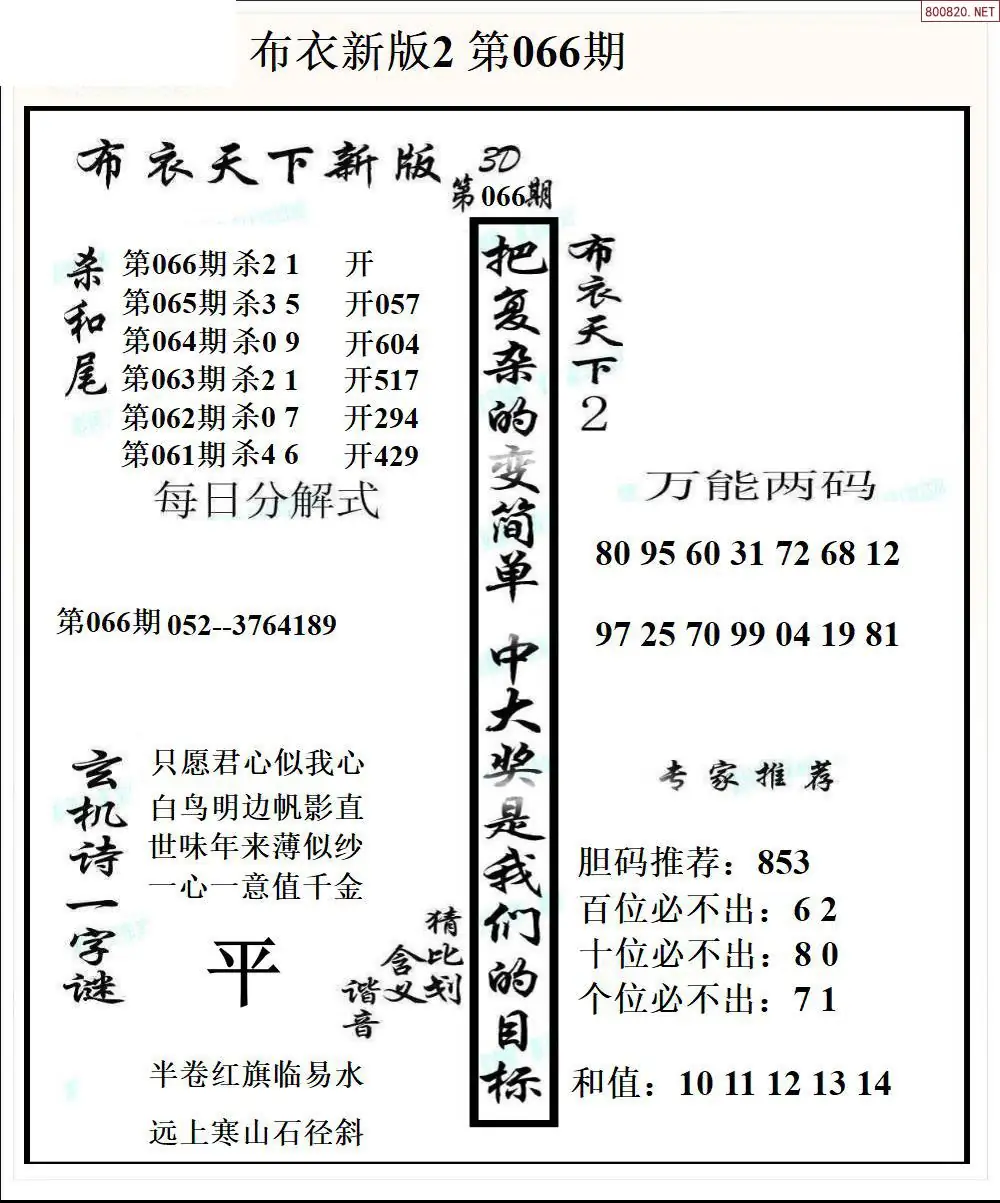 800820.NET
布衣新版2 第066期
布衣天下新版
3D
第066期
杀和尾
第066期 杀2 1 开
第065期 杀3 5 开057
第064期 杀0 9 开604
第063期 杀2 1 开517
第062期 杀0 7 开294
第061期 杀4 6 开429
每日分解式
第066期 052--3764189
玄机诗一字谜
只愿君心似我心
白鸟明边帆影直
世味年来薄似纱
一心一意值千金
平
猜比划
含义
谐音
半卷红旗临易水
远上寒山石径斜
把复杂的变简单 中大奖是我们的目标
布衣天下2
万能两码
80 95 60 31 72 68 12
97 25 70 99 04 19 81
专家推荐
胆码推荐：853
百位必不出：6 2
十位必不出：8 0
个位必不出：7 1
和值：10 11 12 13 14